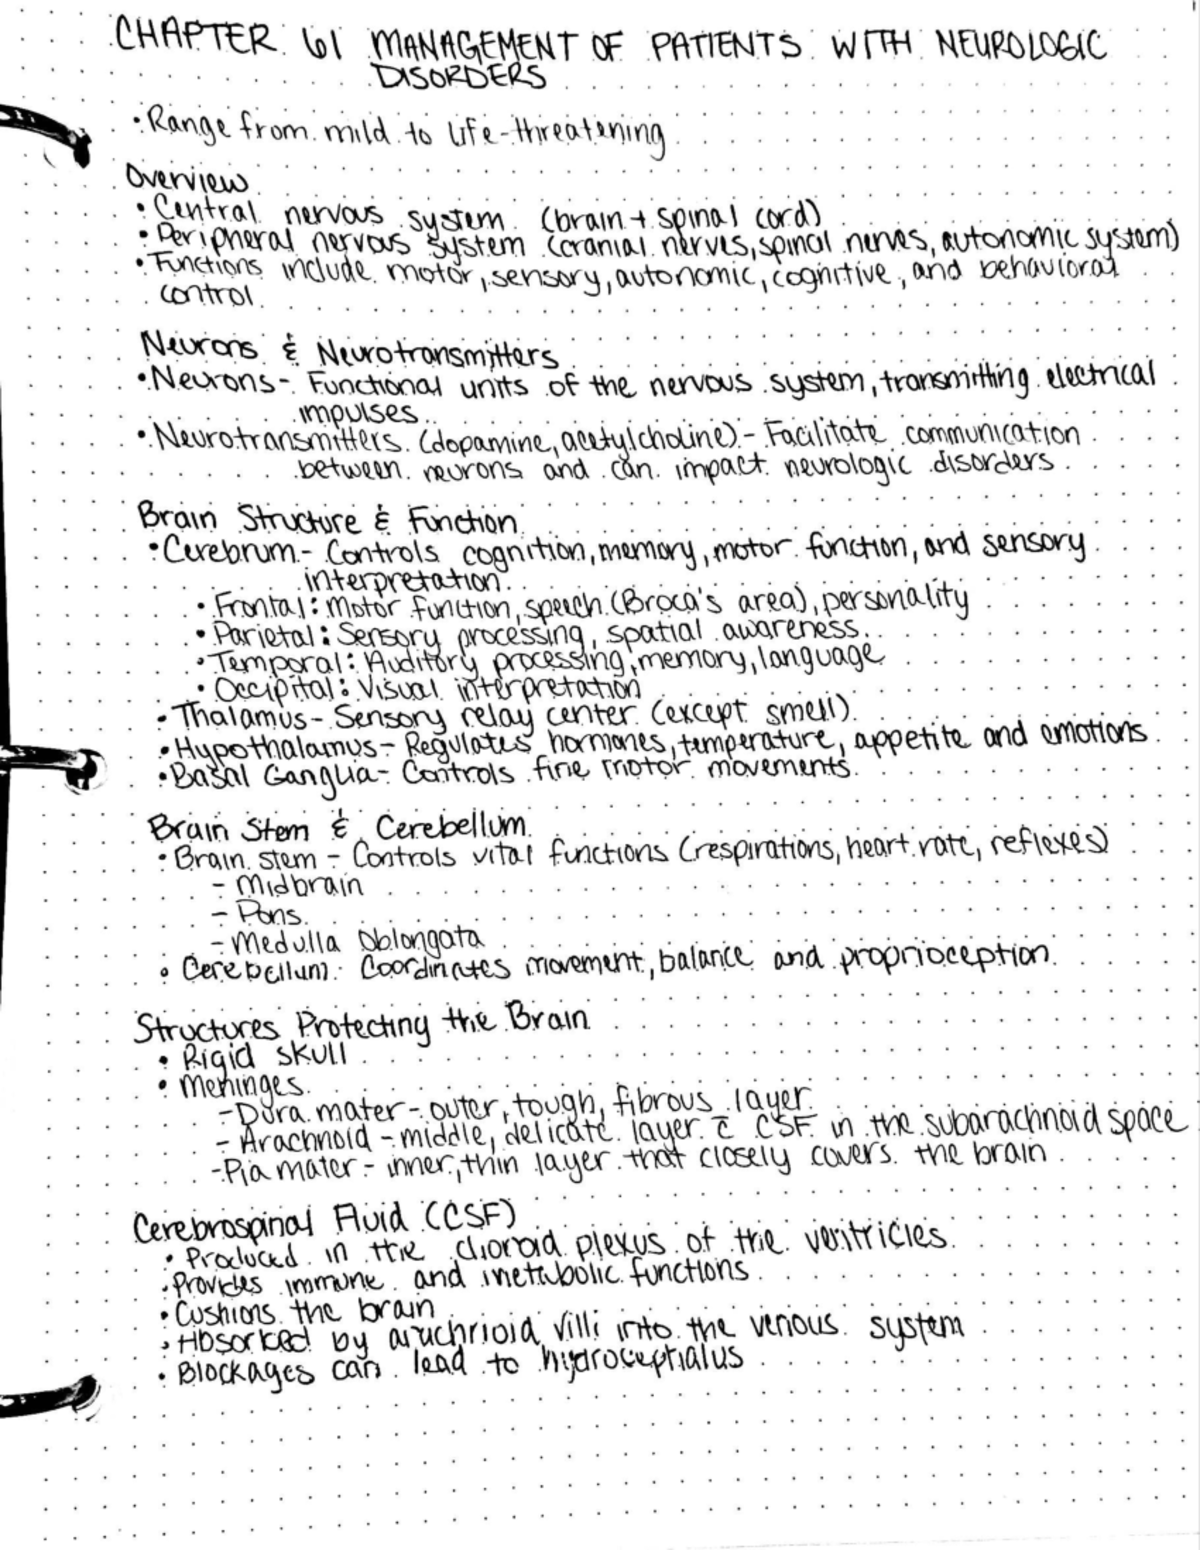 CHAPTER 61 MANAGEMENT OF PATIENTS WITH NEUROLOGIC
DISORDERS
• Range from mild to life-threatening
Overview
• Central nervous system (brain + spinal cord)
• Peripheral nervous system (cranial nerves, spinal nerves, autonomic system)
• Functions include motor, sensory, autonomic, cognitive, and behavioral
control
Neurons & Neurotransmitters
• Neurons - Functional units of the nervous system, transmitting electrical
impulses
• Neurotransmitters (dopamine, acetylcholine) - Facilitate communication
between neurons and can impact neurologic disorders
Brain Structure & Function
• Cerebrum - Controls cognition, memory, motor function, and sensory
interpretation
• Frontal: Motor function, speech (Broca's area), personality
• Parietal: Sensory processing, spatial awareness
• Temporal: Auditory processing, memory, language
• Occipital: Visual interpretation
• Thalamus - Sensory relay center (except smell)
• Hypothalamus - Regulates hormones, temperature, appetite and emotions
• Basal Ganglia - Controls fine motor movements
Brain Stem & Cerebellum
• Brain stem - Controls vital functions (respirations, heart rate, reflexes)
- Midbrain
- Pons
- Medulla Oblongata
• Cerebellum: Coordinates movement, balance and proprioception
Structures Protecting the Brain
• Rigid skull
• Meninges
- Dura mater - outer, tough, fibrous layer
- Arachnoid - middle, delicate layer c̄ CSF in the subarachnoid space
- Pia mater - inner, thin layer that closely covers the brain
Cerebrospinal Fluid (CSF)
• Produced in the choroid plexus of the ventricles
• Provides immune and metabolic functions
• Cushions the brain
• Absorbed by arachnoid villi into the venous system
• Blockages can lead to hydrocephalus